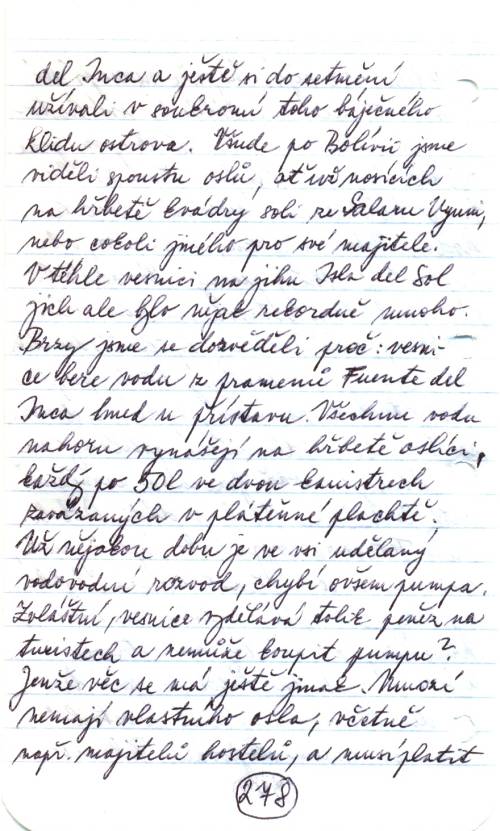 del Inca a ještě si do setmění
užívali v soukromí toho báječného
klidu ostrova. Všude po Bolívii jsme
viděli spoustu oslů, ať už nosících
na hřbetě kvádry soli ze Salaru Uyuni,
nebo cokoli jiného pro své majitele.
V téhle vesnici na jihu Isla del Sol
jich ale bylo nějak rekordně mnoho.
Brzy jsme se dozvěděli proč: vesni-
ce bere vodu z pramenů Fuente del
Inca hned u přístavu. Všechnu vodu
nahoru vynášejí na hřbetě oslíci,
každý po 50l ve dvou kanistrech
zavázaných v plátěnné plachtě.
Už nějakou dobu je ve vsi udělaný
vodovodní rozvod, chybí ovšem pumpa.
Zvláštní, vesnice vydělává tolik peněz na
turistech a nemůže koupit pumpu?
Jenže věc se má ještě jinak. Mnozí
nemají vlastního osla, včetně
např. majitelů hostelů, a musí platit
278